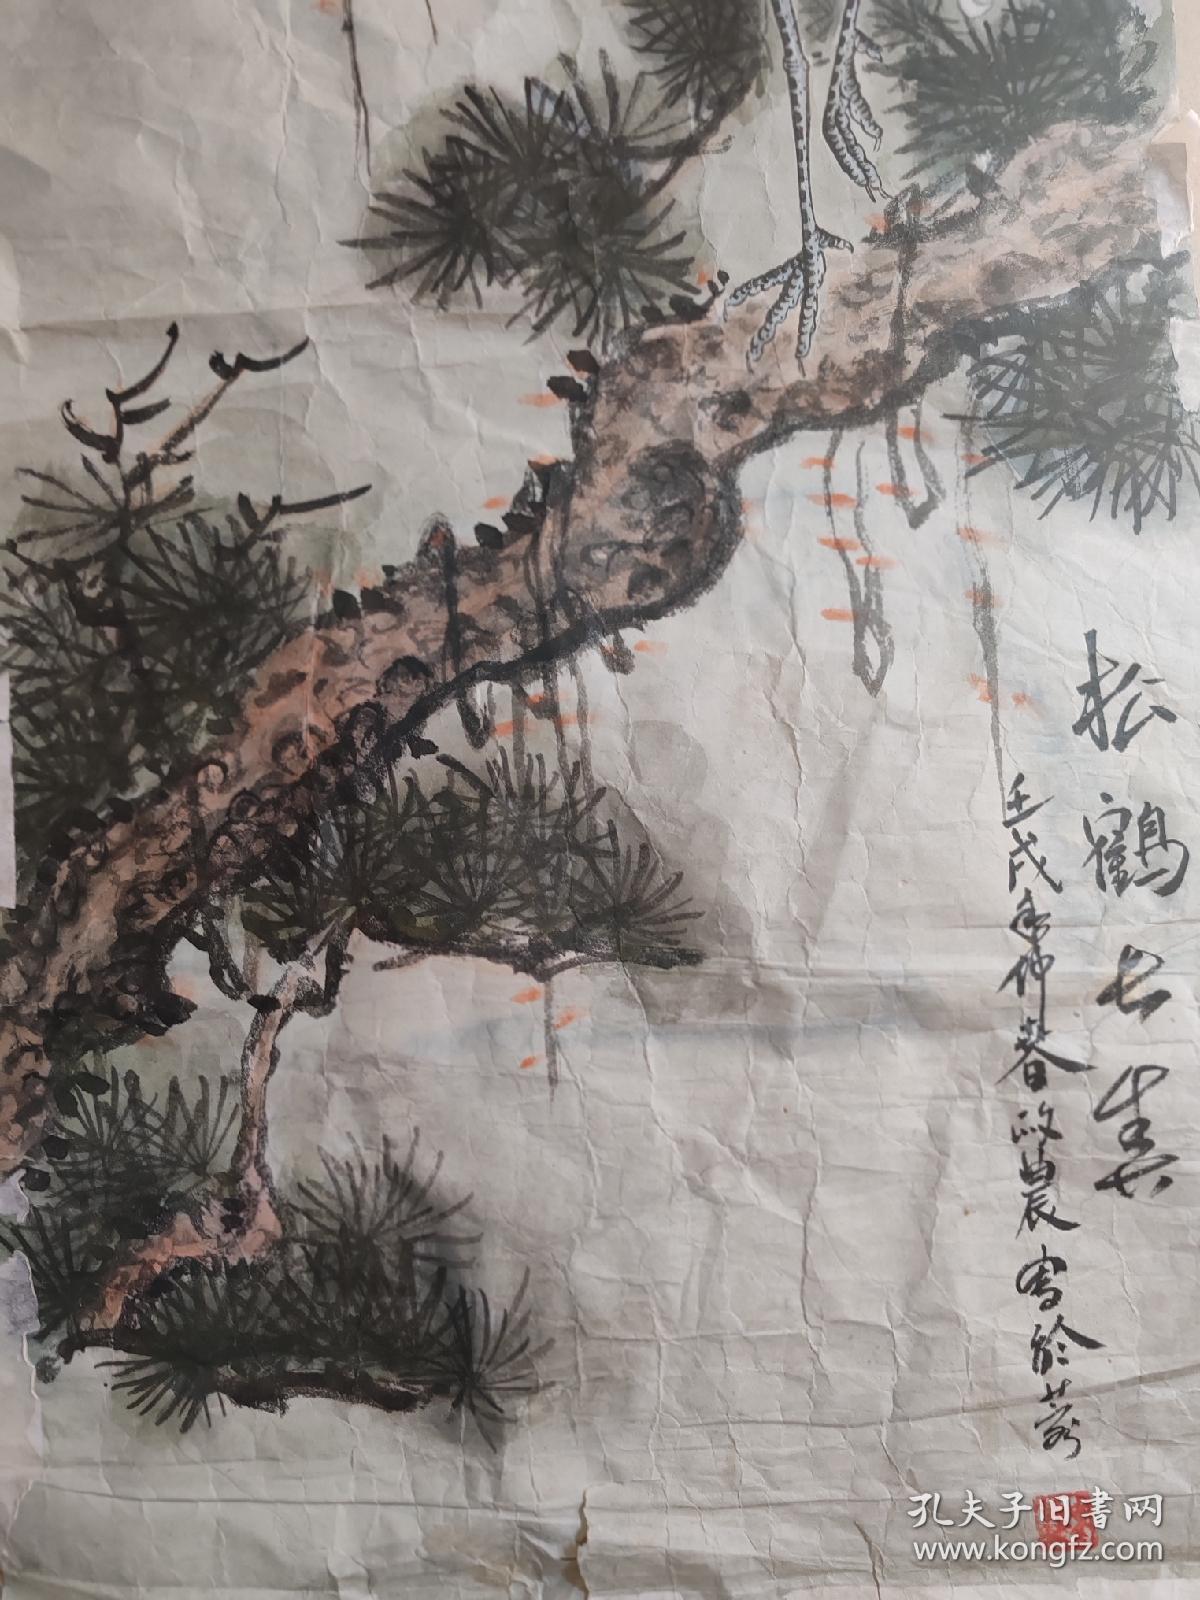 松鶴長春
壬戌年仲春政農寫於蓉
孔夫子旧书网
www.kongfz.com